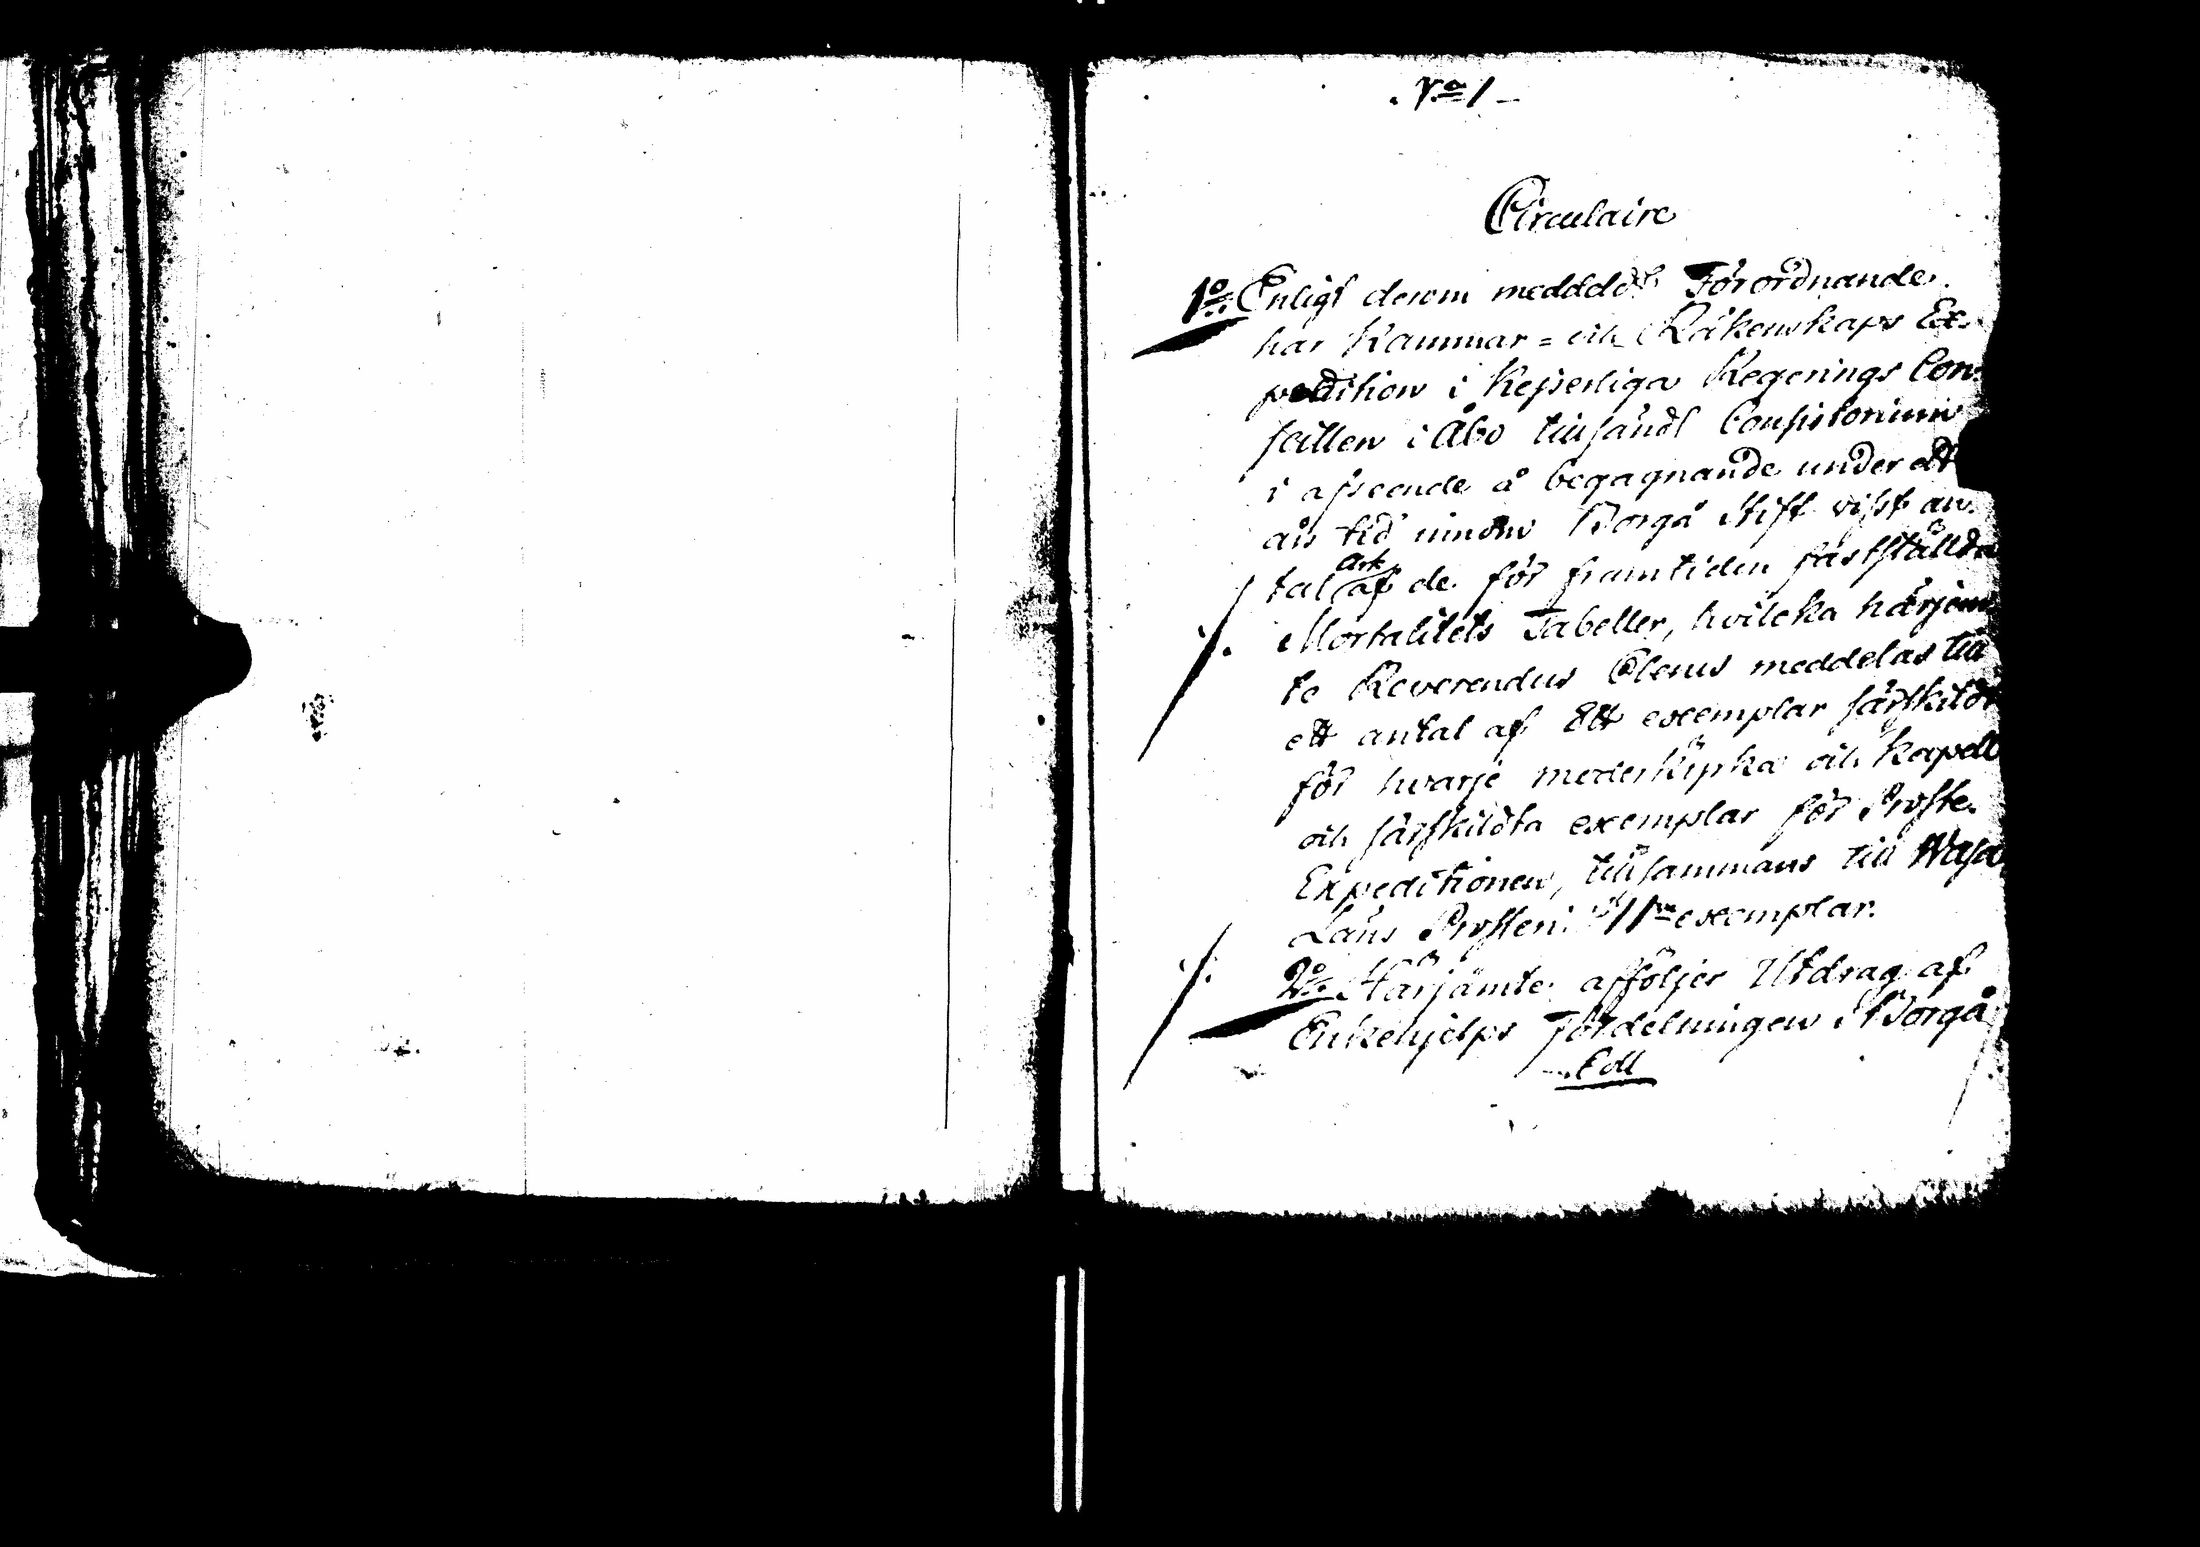 No 1
Circulaire
1o Enligt derom meddeldt Förordnande
har Kammar= och Räkenskaps Ex-
pedition i Kejserliga Regerings Con-
seillen i Åbo tillsändt Consistorium
i afseende å begagnande under ett
års tid innom Borgå Stift visst an-
tal ark af de för framtiden fastställda
Mortalitets Tabeller, hvilcka härjem-
te Reverendus Clerus meddelas till
ett antal af Ett exemplar särskildt
för hvarje moderkyrka och Kapell
och särskildta exemplar för Proste
Expeditionen, tillsammans till Wasa
Läns Prosteri 11 exemplar.
2o Härjämte afföljer Utdrag af
Enkehjelps Fördelningen i Borgå